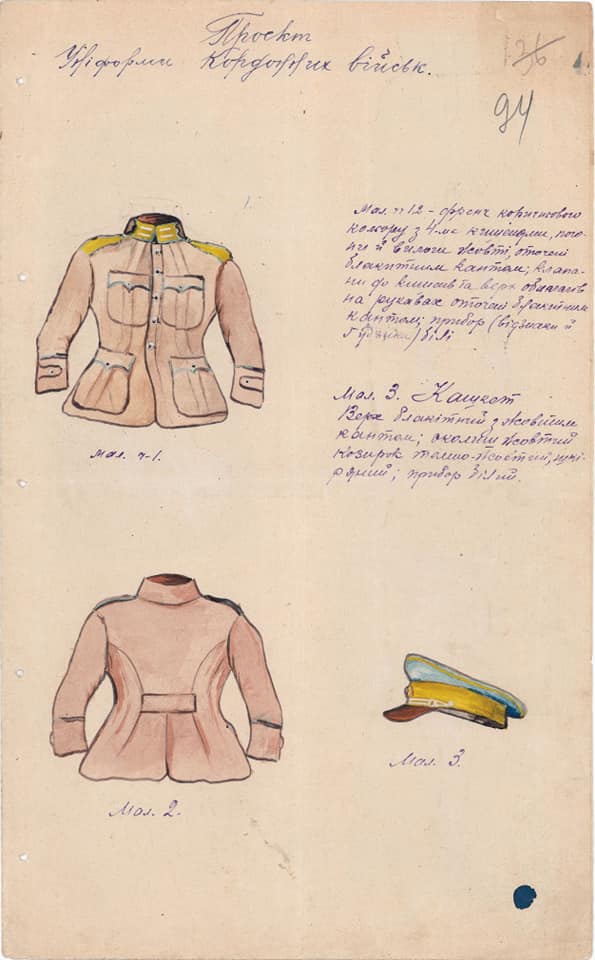 Проєкт
Уніформи Кордонних військ.
36
94
Мал. ч 1 2 – френч коричнового
кольору з 4-ма кишенями, пого-
ни й вилоги жовті, оточені
блакитним кантом; клапа-
ни до кишень та верх обшлагів
на рукавах оточені блакитним
кантом; прибор (відзнаки й
Гудзики) білі
Мал. 3. Кашкет
Верх блакітний з жовтим
кантом; околиш жовтий
козирок темно-жовтий, шкі-
ряний; прибор білий.
мал. ч-1.
Мал. 2.
Мал. 3.